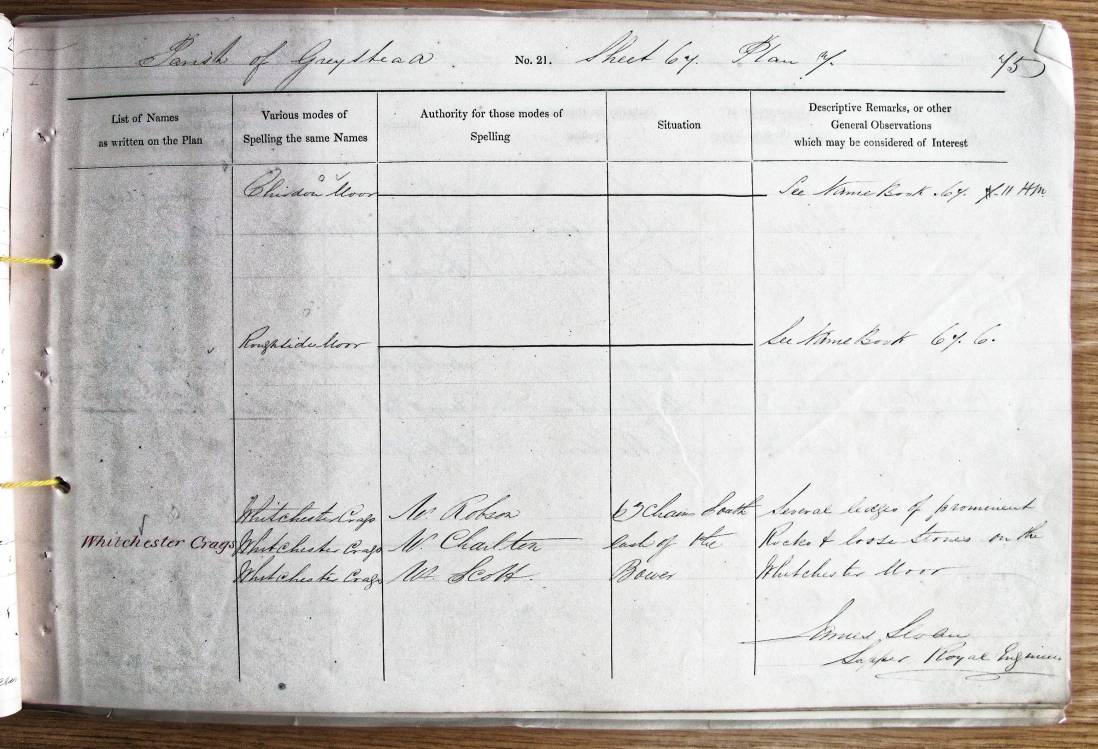 Parish of Greystead. No. 21. Sheet 67. Plan 7. 75
List of Names
as written on the Plan
Various modes of
Spelling the same Names
Authority for those modes of
Spelling
Situation
Descriptive Remarks, or other
General Observations
which may be considered of Interest
Chirdon Moor See Name Book 67. 11 HM.
Roughside Moor See Name Book 67. 6.
Whitchester Crags Mr Robson 63 Chains South Several ledges of prominent
Whitchester Crags Whitchester Crags Mr Charlton East of the Rocks & loose Stones on the
Whitchester Crags Mr Scott. Bower Whitchester Moor
James Sloan
Sapper Royal Engineers